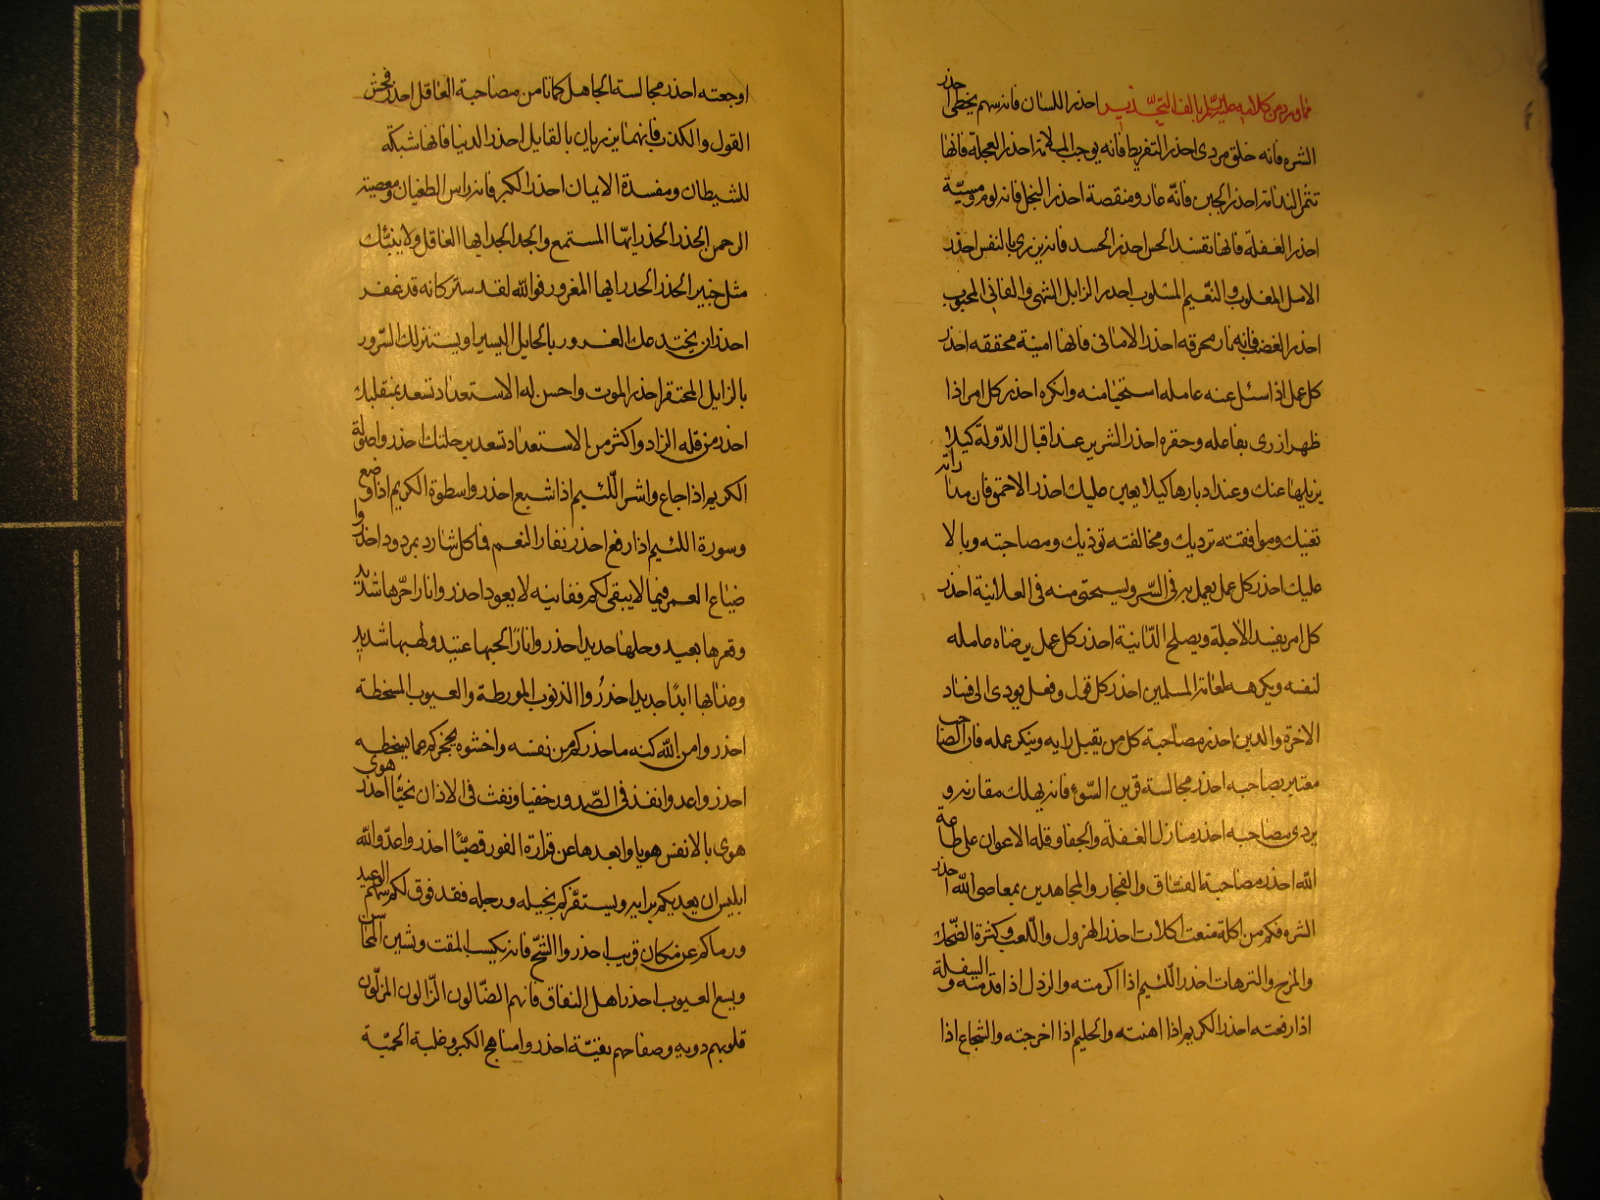 مما ورد من كلامه عليه السلم بالف التحذير احذر اللسان فانه سهم يخطى احذر
الشره فانه خلق مردى احذر التفريط فانه يوجب الملامة احذر العجلة فانها
تثمر الندامة احذر الجبن فانّه عار ومنقصة احذر البخل فانه لوم ومسبّة
احذر الغفلة فانها تفسد الحس احذر الحسد فانه يزرى بالنفس احذر
الامل المغلوب والنّعيم المسلوب احذر الزايل الشهى والفانى المحبوب
احذر الغضب فانه نار محرقه احذر الامانى فانها امنية محققه احذر
كل عمل اذا سئل عنه عامله استحيا منه وانكره احذر كل امر اذا
ظهر ازرى بفاعله وحقره احذر الشرير عند اقبال الدّولة كيلا
يزيلها عنك وعند ادبارها كيلا يعين عليك احذر الاحمق فان مداراته
تعنيك وموافقته ترديك ومخالفته توذيك ومصاحبته وبالا
عليك احذر كل عمل يعمل به فى السّر ويستحى منه فى العلانية احذر
كل امر يفسد الآجلة ويصلح الدّانية احذر كل عمل يرضاه عامله
لنفسه ويكرهه لعامة المسلمين احذر كل قول وفعل يودى الى فساد
الاخرة والدين احذر مصاحبة كل من يقبل رايه وينكر عمله فان الصّاحب
معتبر بصاحبه احذر مجالسة قرين السّوء فانه يهلك مقارنه و
يردى مصاحبه احذر منازل الغفلة والجفا وقله الاعوان على طاعة
الله احذر مصاحبة الفسّاق والفجار والمجاهدين بمعاصى الله احذر
الشره فكم من اكلة منعت اكلات احذر الهزل واللّعب وكثرة الضّحك
والمزح والترهات احذر اللّئيم اذا اكرمته والرذل اذا قدمته والسفلة
اذا رفعته احذر الكريم اذا اهنته والحليم اذا احرجته والشجاع اذا
اوجعته احذر مجالسة الجاهل كما تامن مصاحبة العاقل احذر فحش
القول والكذب فانهما يزريان بالقايل احذر الدنيا فانها شبكة
للشيطان ومفسدة الايمان احذر الكبر فانه راس الطغيان ومعصية
الرحمن الحذر الحذر ايهّا المستمع والجد الجد ايها العاقل ولا ينبّئك
مثل خبير الحذر الحذر ايها المغرور فوالله لقد ستر كانه قد غفر
احذر ان يختدعك الغرور بالحايل اليسير او يستنزلك السّرور
بالزايل المحتقر احذر الموت واحسن له الاستعداد تسعد بمنقلبك
احذر من قله الزاد واكثر من الاستعداد تسعد برحلتك احذروا صولة
الكريم اذا جاع واشر اللّئيم اذا شبع احذروا سطوة الكريم اذا وضع
وسورة اللئيم اذا رفع احذر نفار النعم فما كل شارد بمردود احذروا
ضياع العمر فيما لا يبقى لكم ففانيه لا يعود احذروا نارا حرّها شديد
وقعرها بعيد وحليها حديد احذروا نارًا لجبها عتيد ولهبها شديد
وعذابها ابدًا جديد احذرُوا الذنوب المورطة والعيوب المسخطة
احذروا من الله كنه ما حذركم من نفسه واخشوه يحجزكم عما يسخطه
احذروا عدوا نفذ فى الصّدور خفيا ونفث فى الاذان نجيّا احذروا هوى
هوى بالانفس هويا وابعدها عن قرارة الفوز قصيّاً احذروا عدّو الله
ابليس ان يعديكم برايه ويستفزّكم بخيله ورجله فقد فوق لكم سهم الوعيد
ورماكم عن مكان قريب احذروا الشحّ فانه يكسب المقت ويشين المحاسن
ويسع العيوب احذر اهل النفاق فانهم الضّالون الزّالون المزلّون
قلوبهم دويه وصفاحهم نقيّة احذروا منافح الكبر وغلبة الحميّة